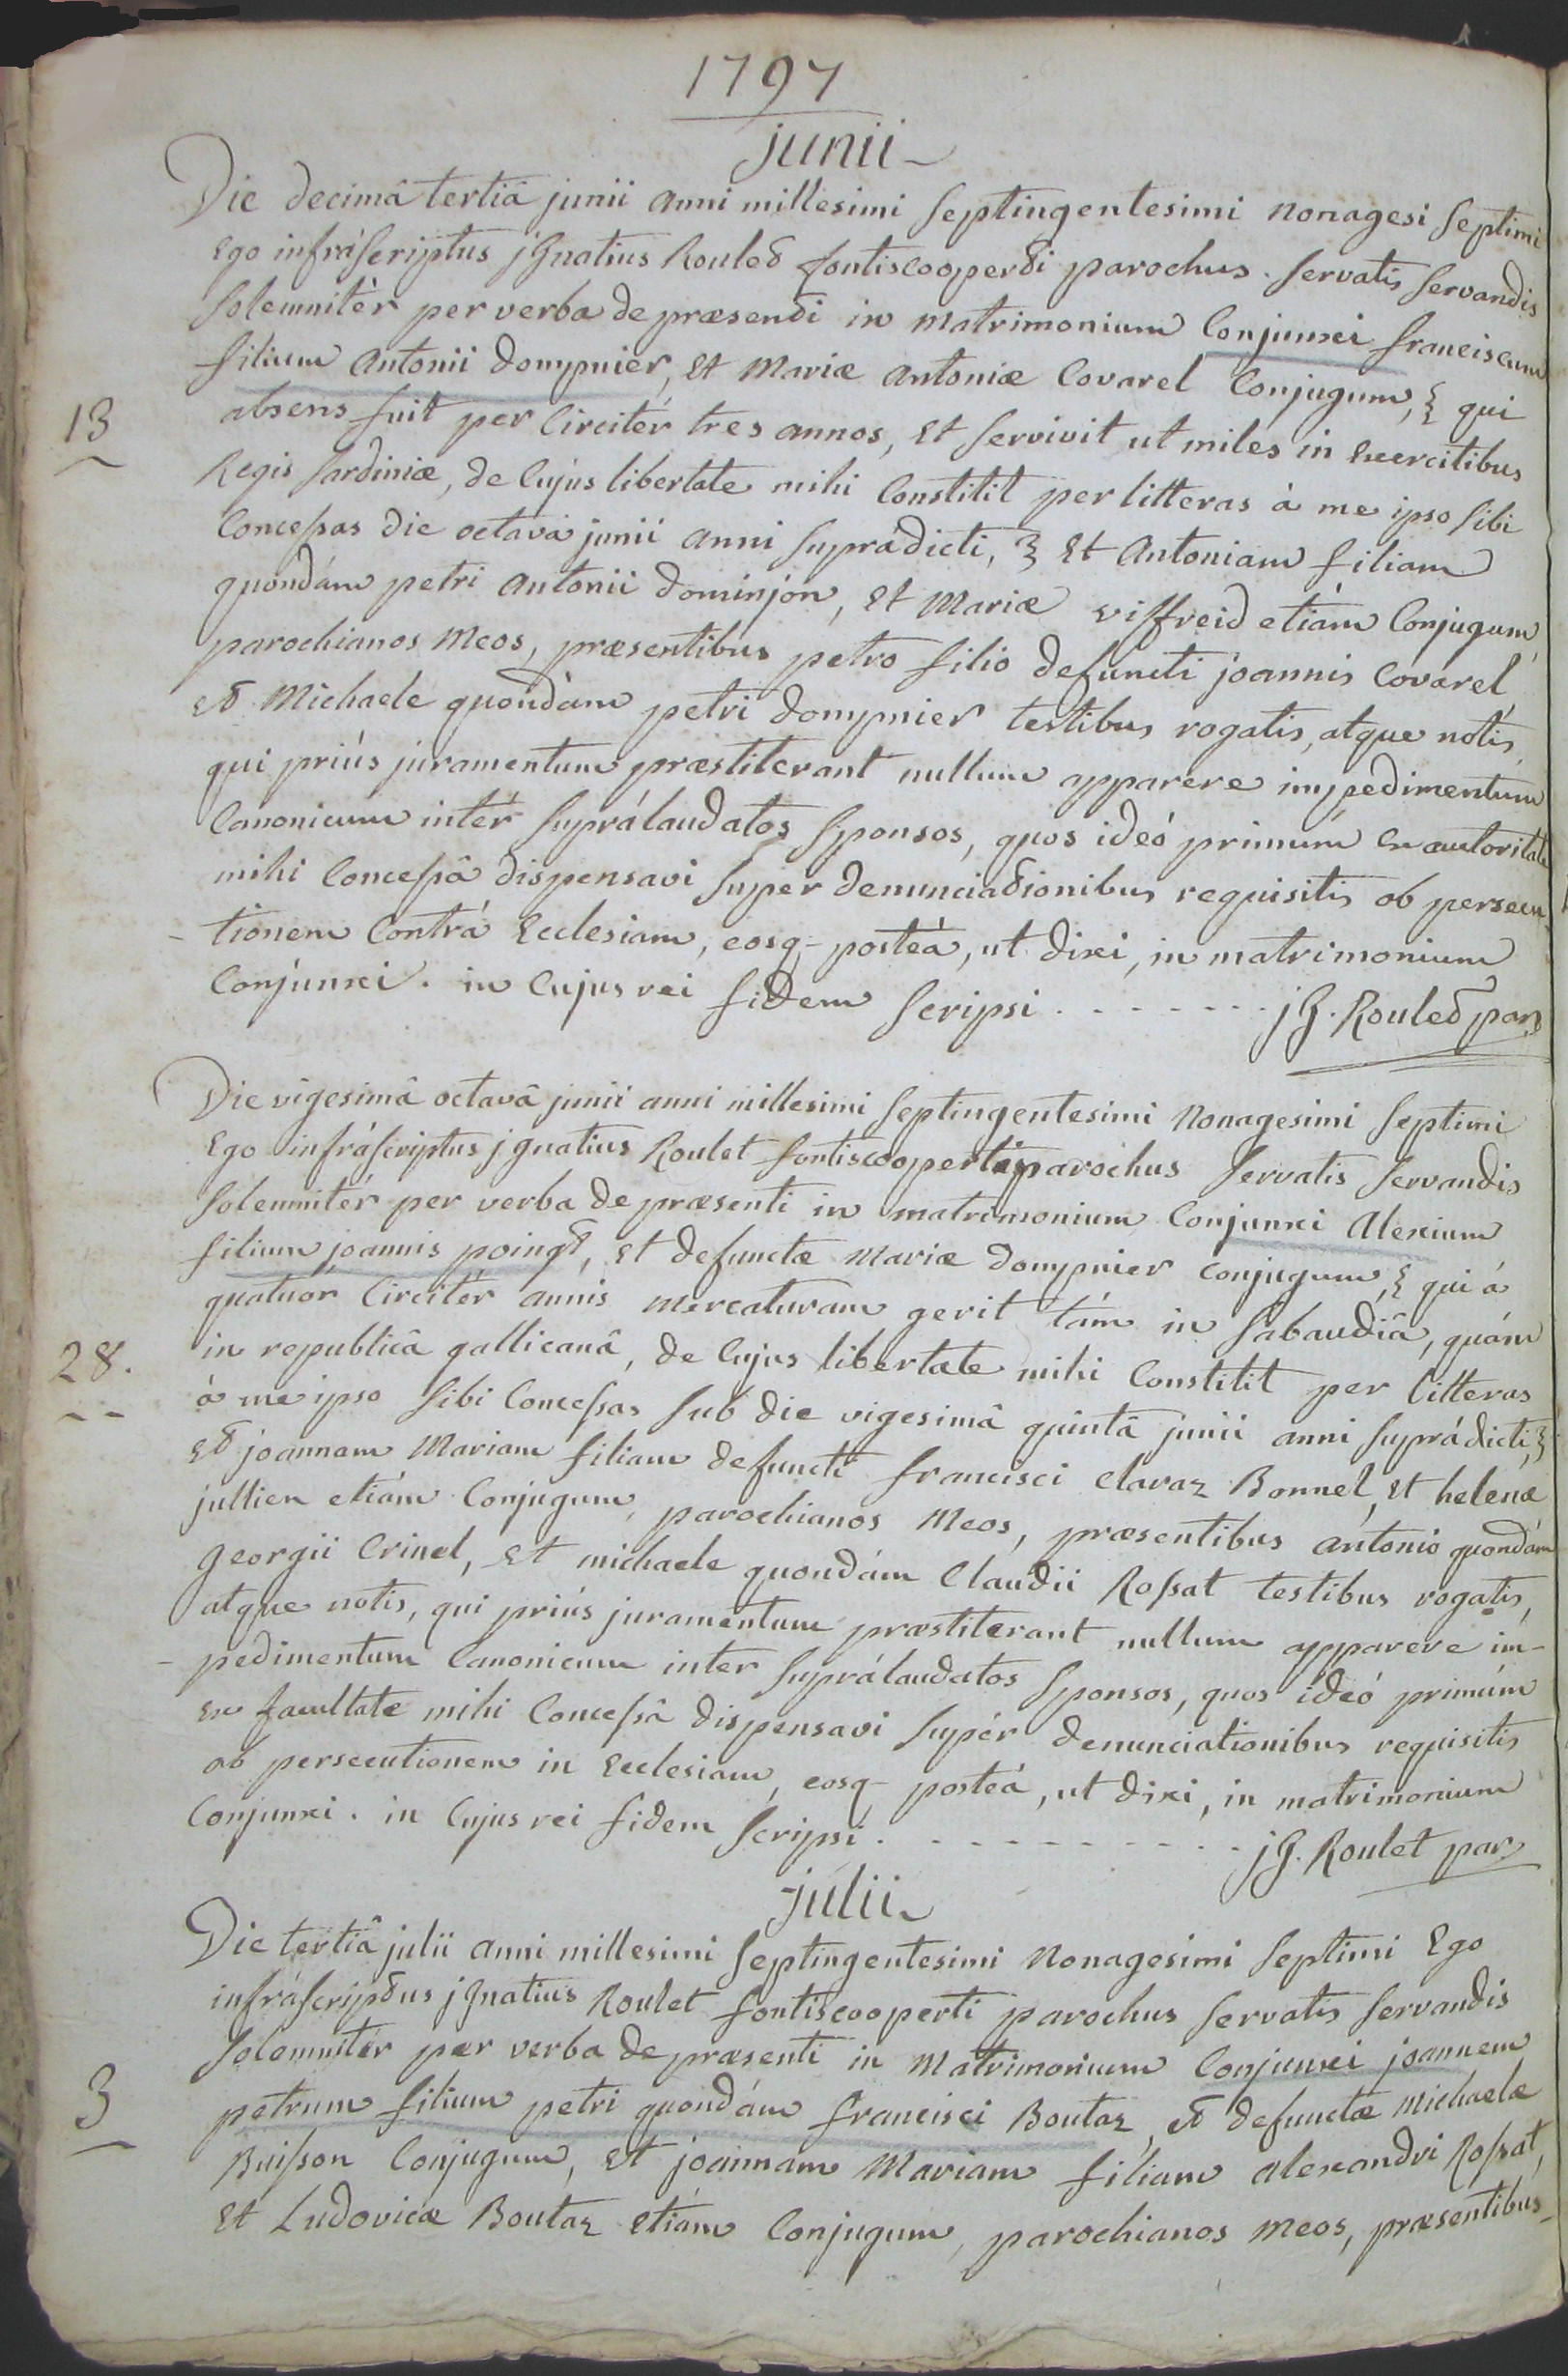 1797
junii
Die decimâ tertiâ junii anni millesimi septingentesimi nonagesi septimi
Ego infráscriptus jgnatius Rouled fontiscooperdi parochus servatis servandis
solemnitèr per verba de præsendi in matrimonium Conjunxi franciscum
filium Antonii Dompnier, et Mariæ Antoniæ Covarel Conjugum, { qui
13
absens fuit per Circitér tres annos, Et servivit ut miles in Exercitibus
Regis Sardiniæ, de Cujus libertate mihi Constitit per litteras à me ipso sibi
Concessas die octavâ junii anni suprádicti, } Et Antoniam filiam
quondám petri Antonii Dominjon, et Mariæ viffreid etiám Conjugum,
parochianos meos, præsentibus petro filio defuncti joannis Covarel,
et Michaele quondàm petri Dompnier testibus rogatis, atque notis,
qui priús juramentum præstiterant nullum apparere impedimentum
Canonicum intér suprálaudatos Sponsos, quos ideó primúm Ex autoritate
mihi Concessâ dispensavi super denunciadionibus requisitis ob persecu
-tionem Contrá Ecclesiam, eosq- posteá, ut dixi, in matrimonium
Conjunxi. in Cujus rei fidem scripsi . - - - - - - - jg. Rouled par
Die vigesimâ octavâ junii anni millesimi septingentesimi nonagesimi septimi
Ego infráscriptus jgnatius Roulet fontiscooperti parochus servatis servandis
solemnitér per verba de præsenti in matrimonium Conjunxi Alexium
filium joannis poingt, et defunctæ Mariæ Dompnier conjugum, { qui á
quatuor Circitér annis mercaturam gerit tám in Sabaudiâ, quám
28.
in republicâ gallicanâ, de Cujus libertate mihi Constitit per litteras
à me ipso sibi Concessas sub die vigesimâ quintâ junii anni suprádicti, }
et joannam Mariam filiam defuncti francisci Claraz Bonnel, et helenæ
jullien etiám Conjugum, parochianos meos, præsentibus antonio quondám
georgii Crinel, et michaele quondám Claudii Rossat testibus rogatis,
atque notis, qui priús juramentum præstiterant nullum apparere im-
-pedimentum Canonicum inter suprálaudatos Sponsos, quos ideó primúm
Ex facultate mihi Concessâ dispensavi supér denunciationibus requisitis
ob persecutionem in Ecclesiam, eosq- posteá, ut dixi, in matrimonium
Conjunxi. in Cujus rei fidem scripsi . - - - - - - - - - jg. Roulet par
julii
Die tertiâ julii anni millesimi septingentesimi nonagesimi septimi Ego
infráscripdus jgnatius Roulet fontiscooperti parochus servatis servandis
solemnitér per verba de præsenti in matrimonium Conjunxi joannem
3
petrum filium petri quondám francisci Boutaz, et defunctæ Michaelæ
Buisson Conjugum, et joannam Mariam filiam alexandri Rossat,
Et Ludovicæ Boutaz etiám Conjugum, parochianos meos, præsentibus